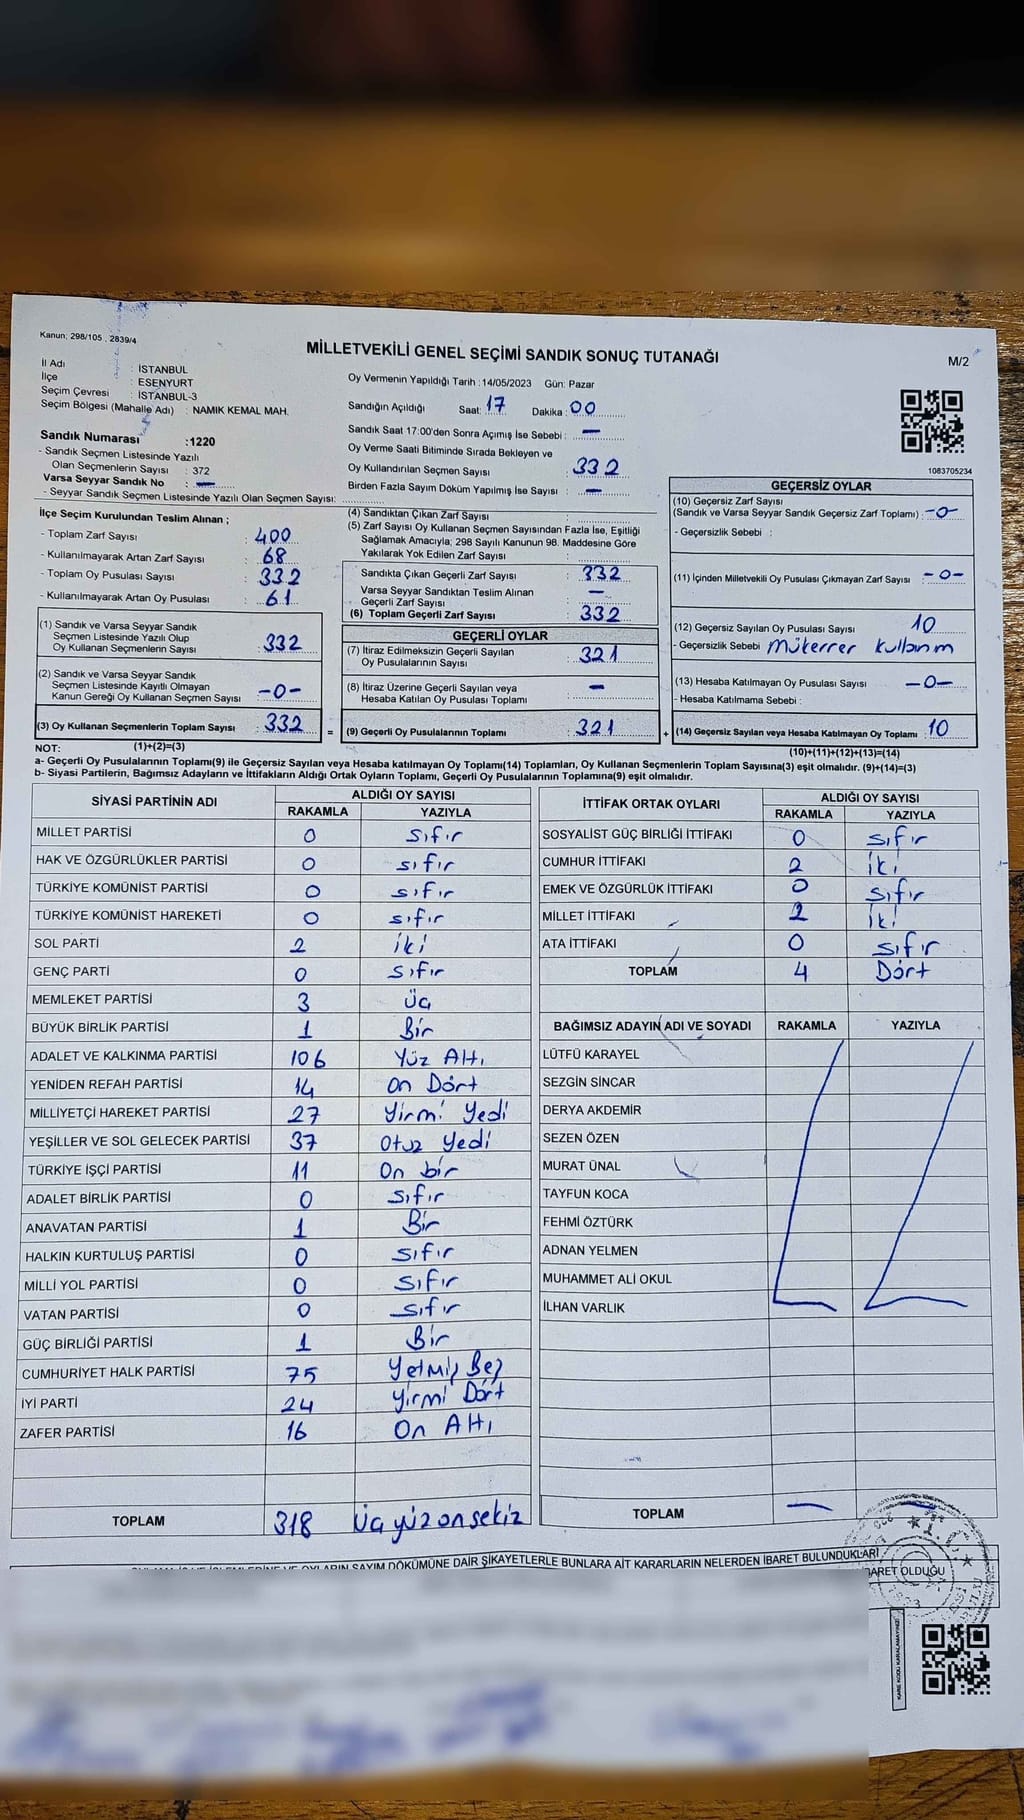 Kanun: 298/105 , 2839/4
MİLLETVEKİLİ GENEL SEÇİMİ SANDIK SONUÇ TUTANAĞI
M/2
İl Adı : İSTANBUL
İlçe : ESENYURT
Seçim Çevresi : İSTANBUL-3
Seçim Bölgesi (Mahalle Adı) : NAMIK KEMAL MAH.
Oy Vermenin Yapıldığı Tarih : 14/05/2023 Gün: Pazar
Sandığın Açıldığı Saat: 17 Dakika: 00
Sandık Saat 17:00'den Sonra Açımış İse Sebebi : —
Oy Verme Saati Bitiminde Sırada Bekleyen ve
Oy Kullandırılan Seçmen Sayısı : 332
Birden Fazla Sayım Döküm Yapılmış İse Sayısı : —
1083705234
Sandık Numarası :1220
- Sandık Seçmen Listesinde Yazılı
Olan Seçmenlerin Sayısı : 372
Varsa Seyyar Sandık No : —
- Seyyar Sandık Seçmen Listesinde Yazılı Olan Seçmen Sayısı:
İlçe Seçim Kurulundan Teslim Alınan ;
- Toplam Zarf Sayısı : 400
- Kullanılmayarak Artan Zarf Sayısı : 68
- Toplam Oy Pusulası Sayısı : 332
- Kullanılmayarak Artan Oy Pusulası : 61
(1) Sandık ve Varsa Seyyar Sandık
Seçmen Listesinde Yazılı Olup
Oy Kullanan Seçmenlerin Sayısı : 332
(2) Sandık ve Varsa Seyyar Sandık
Seçmen Listesinde Kayıtlı Olmayan
Kanun Gereği Oy Kullanan Seçmen Sayısı -0-
(3) Oy Kullanan Seçmenlerin Toplam Sayısı : 332 =
(1)+(2)=(3)
(4) Sandıktan Çıkan Zarf Sayısı :
(5) Zarf Sayısı Oy Kullanan Seçmen Sayısından Fazla İse, Eşitliği
Sağlamak Amacıyla; 298 Sayılı Kanunun 98. Maddesine Göre
Yakılarak Yok Edilen Zarf Sayısı :
Sandıkta Çıkan Geçerli Zarf Sayısı : 332
Varsa Seyyar Sandıktan Teslim Alınan
Geçerli Zarf Sayısı : —
(6) Toplam Geçerli Zarf Sayısı : 332
GEÇERLİ OYLAR
(7) İtiraz Edilmeksizin Geçerli Sayılan
Oy Pusulalarının Sayısı : 321
(8) İtiraz Üzerine Geçerli Sayılan veya
Hesaba Katılan Oy Pusulası Toplamı : —
(9) Geçerli Oy Pusulalarının Toplamı : 321 +
GEÇERSİZ OYLAR
(10) Geçersiz Zarf Sayısı
(Sandık ve Varsa Seyyar Sandık Geçersiz Zarf Toplamı) : -0-
- Geçersizlik Sebebi :
(11) İçinden Milletvekili Oy Pusulası Çıkmayan Zarf Sayısı : -0-
(12) Geçersiz Sayılan Oy Pusulası Sayısı : 10
- Geçersizlik Sebebi Mükerrer kullanım
(13) Hesaba Katılmayan Oy Pusulası Sayısı : -0-
- Hesaba Katılmama Sebebi :
(14) Geçersiz Sayılan veya Hesaba Katılmayan Oy Toplamı : 10
(10)+(11)+(12)+(13)=(14)
NOT:
a- Geçerli Oy Pusulalarının Toplamı(9) ile Geçersiz Sayılan veya Hesaba katılmayan Oy Toplamı(14) Toplamları, Oy Kullanan Seçmenlerin Toplam Sayısına(3) eşit olmalıdır. (9)+(14)=(3)
b- Siyasi Partilerin, Bağımsız Adayların ve İttifakların Aldığı Ortak Oyların Toplamı, Geçerli Oy Pusulalarının Toplamına(9) eşit olmalıdır.
SİYASİ PARTİNİN ADI ALDIĞI OY SAYISI
RAKAMLA YAZIYLA
MİLLET PARTİSİ 0 sıfır
HAK VE ÖZGÜRLÜKLER PARTİSİ 0 sıfır
TÜRKİYE KOMÜNİST PARTİSİ 0 sıfır
TÜRKİYE KOMÜNİST HAREKETİ 0 sıfır
SOL PARTİ 2 iki
GENÇ PARTİ 0 sıfır
MEMLEKET PARTİSİ 3 Üç
BÜYÜK BİRLİK PARTİSİ 1 Bir
ADALET VE KALKINMA PARTİSİ 106 Yüz Altı
YENİDEN REFAH PARTİSİ 14 On Dört
MİLLİYETÇİ HAREKET PARTİSİ 27 Yirmi Yedi
YEŞİLLER VE SOL GELECEK PARTİSİ 37 Otuz Yedi
TÜRKİYE İŞÇİ PARTİSİ 11 On bir
ADALET BİRLİK PARTİSİ 0 sıfır
ANAVATAN PARTİSİ 1 Bir
HALKIN KURTULUŞ PARTİSİ 0 sıfır
MİLLİ YOL PARTİSİ 0 sıfır
VATAN PARTİSİ 0 sıfır
GÜÇ BİRLİĞİ PARTİSİ 1 Bir
CUMHURİYET HALK PARTİSİ 75 Yetmiş Beş
İYİ PARTİ 24 Yirmi Dört
ZAFER PARTİSİ 16 On Altı
TOPLAM 318 Üçyüzonsekiz
İTTİFAK ORTAK OYLARI ALDIĞI OY SAYISI
RAKAMLA YAZIYLA
SOSYALİST GÜÇ BİRLİĞİ İTTİFAKI 0 sıfır
CUMHUR İTTİFAKI 2 iki
EMEK VE ÖZGÜRLÜK İTTİFAKI 0 sıfır
MİLLET İTTİFAKI 2 iki
ATA İTTİFAKI 0 sıfır
TOPLAM 4 Dört
BAĞIMSIZ ADAYIN ADI VE SOYADI RAKAMLA YAZIYLA
LÜTFÜ KARAYEL
SEZGİN SİNCAR
DERYA AKDEMİR
SEZEN ÖZEN
MURAT ÜNAL
TAYFUN KOCA
FEHMİ ÖZTÜRK
ADNAN YELMEN
MUHAMMET ALİ OKUL
İLHAN VARLIK
TOPLAM — —
OYLARIN SAYIM DÖKÜMÜNE DAİR ŞİKAYETLERLE BUNLARA AİT KARARLARIN NELERDEN İBARET BULUNDUKLARI
OLDUĞU